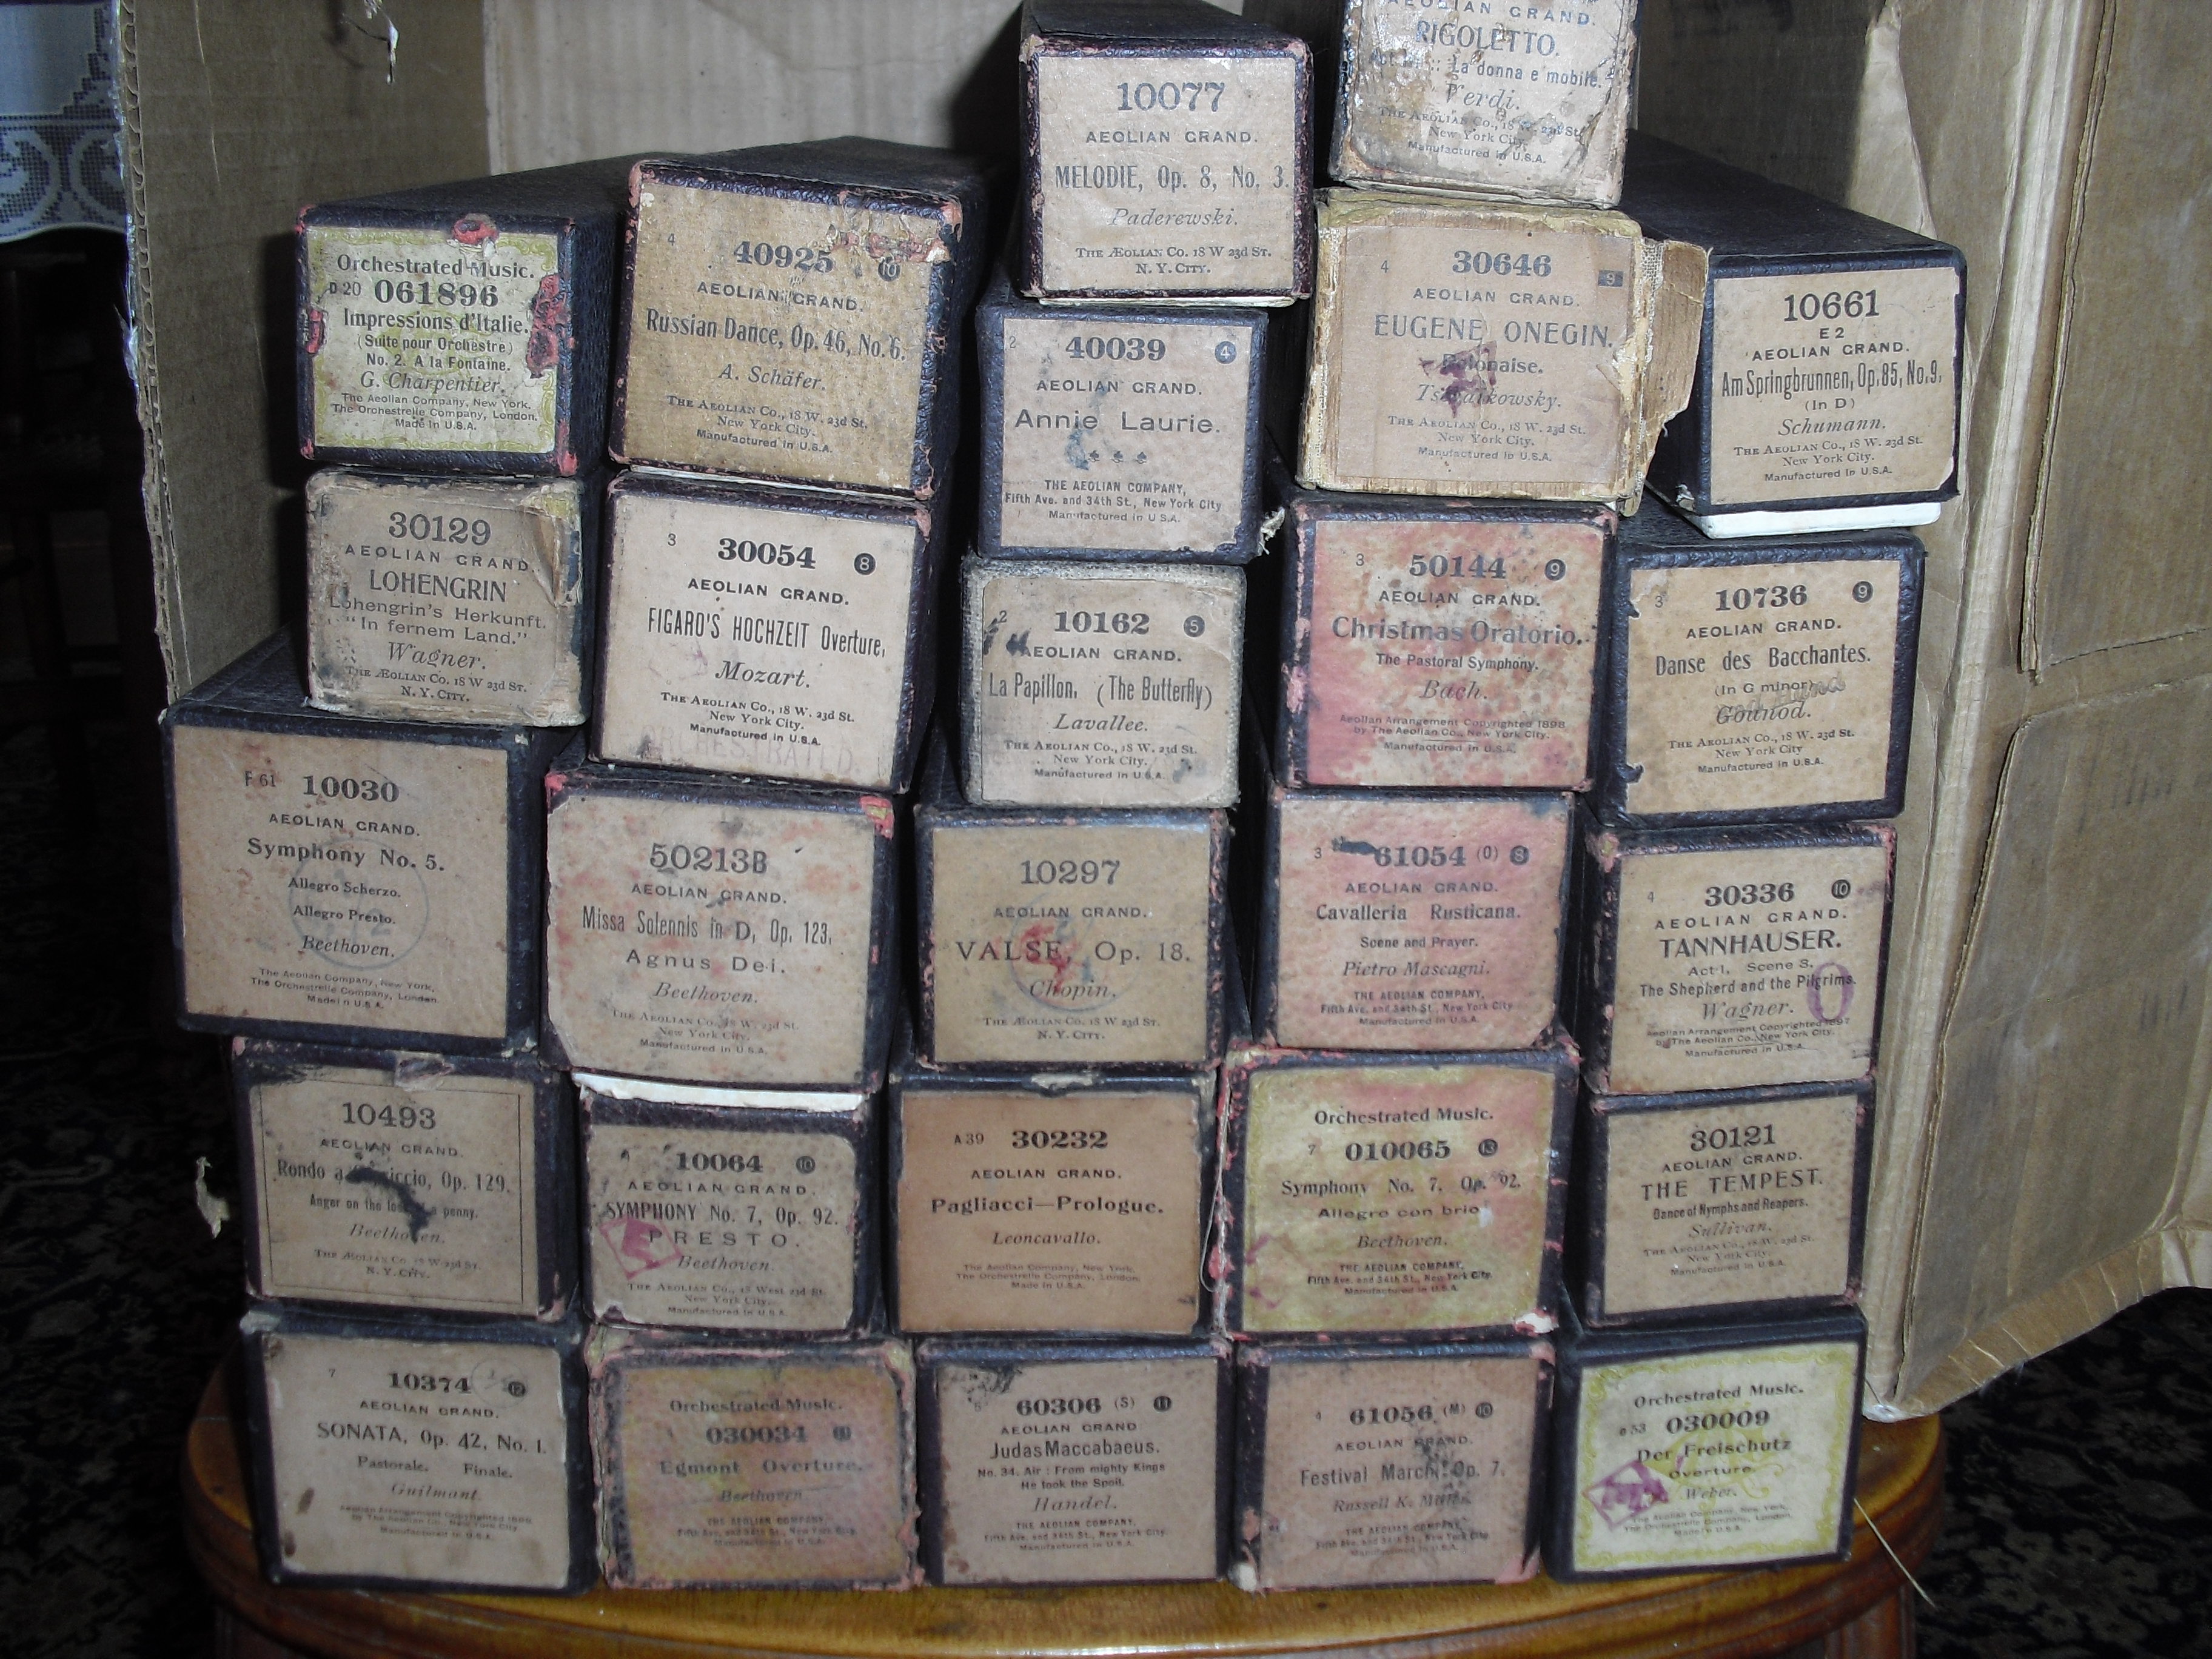 AEOLIAN GRAND.
RIGOLETTO.
La donna e mobile.
Verdi.
THE AEOLIAN CO., 18 W. 23d St.
New York City.
Manufactured in U.S.A.
10077
AEOLIAN GRAND.
MELODIE, Op. 8, No. 3.
Paderewski.
THE ÆOLIAN CO. 18 W 23d ST.
N. Y. CITY.
Orchestrated Music.
D 20 061896
Impressions d'Italie.
(Suite pour Orchestre)
No. 2. A la Fontaine.
G. Charpentier.
The Aeolian Company, New York.
The Orchestrelle Company, London.
Made in U.S.A.
4 40925 10
AEOLIAN GRAND.
Russian Dance, Op. 46, No. 6.
A. Schäfer.
THE AEOLIAN CO., 18 W. 23d St.
New York City.
Manufactured in U.S.A.
2 40039 4
AEOLIAN GRAND.
Annie Laurie.
THE AEOLIAN COMPANY,
Fifth Ave. and 34th St., New York City
Manufactured in U.S.A.
4 30646 9
AEOLIAN GRAND.
EUGENE ONEGIN.
Polonaise.
Tschaikowsky.
THE AEOLIAN CO., 18 W. 23d St.
New York City.
Manufactured in U.S.A.
10661
E 2
AEOLIAN GRAND.
Am Springbrunnen, Op. 85, No. 9.
(In D)
Schumann.
THE AEOLIAN CO., 18 W. 23d St.
New York City.
Manufactured in U.S.A.
30129
AEOLIAN GRAND.
LOHENGRIN
Lohengrin's Herkunft.
"In fernem Land."
Wagner.
THE ÆOLIAN CO. 18 W 23d ST.
N. Y. CITY.
3 30054 8
AEOLIAN GRAND.
FIGARO'S HOCHZEIT Overture,
Mozart.
THE AEOLIAN CO., 18 W. 23d St.
New York City.
Manufactured in U.S.A.
ORCHESTRATED
2 10162 5
AEOLIAN GRAND.
La Papillon. (The Butterfly)
Lavallee.
THE AEOLIAN CO., 18 W. 23d St.
New York City.
Manufactured in U.S.A.
3 50144 9
AEOLIAN GRAND.
Christmas Oratorio.
The Pastoral Symphony.
Bach.
Aeolian Arrangement Copyrighted 1898
by The Aeolian Co., New York City.
Manufactured in U.S.A.
3 10736 9
AEOLIAN GRAND.
Danse des Bacchantes.
(In G minor)
Gounod.
THE AEOLIAN CO., 18 W. 23d St.
New York City
Manufactured in U.S.A.
F 61 10030
AEOLIAN GRAND.
Symphony No. 5.
Allegro Scherzo.
Allegro Presto.
Beethoven.
The Aeolian Company, New York.
The Orchestrelle Company, London.
Made in U.S.A.
50213B
AEOLIAN GRAND.
Missa Solennis in D, Op. 123.
Agnus Dei.
Beethoven.
THE AEOLIAN CO., 18 W. 23d St.
New York City.
Manufactured in U.S.A.
10297
AEOLIAN GRAND.
VALSE, Op. 18.
Chopin.
THE ÆOLIAN CO. 18 W 23d ST.
N. Y. CITY.
3 61054 (O) 8
AEOLIAN GRAND.
Cavalleria Rusticana.
Scene and Prayer.
Pietro Mascagni.
THE AEOLIAN COMPANY,
Fifth Ave. and 34th St., New York City
Manufactured in U.S.A.
4 30336 10
AEOLIAN GRAND.
TANNHAUSER.
Act 1, Scene 3.
The Shepherd and the Pilgrims.
Wagner.
Aeolian Arrangement Copyrighted 1897
by The Aeolian Co., New York City.
Manufactured in U.S.A.
10493
AEOLIAN GRAND.
Rondo a Op. 129.
Anger on the a penny.
Beethoven.
THE ÆOLIAN CO. 18 W 23d ST.
N. Y. CITY.
10064 10
AEOLIAN GRAND.
SYMPHONY No. 7, Op. 92.
PRESTO.
Beethoven.
THE AEOLIAN CO., 18 West 23d St.
New York City.
Manufactured in U.S.A.
A 39 30232
AEOLIAN GRAND.
Pagliacci—Prologue.
Leoncavallo.
The Aeolian Company, New York.
The Orchestrelle Company, London.
Made in U.S.A.
Orchestrated Music.
7 010065 13
Symphony No. 7, Op. 92.
Allegro con brio
Beethoven.
THE AEOLIAN COMPANY,
Fifth Ave. and 34th St., New York City.
Manufactured in U.S.A.
30121
AEOLIAN GRAND.
THE TEMPEST.
Dance of Nymphs and Reapers.
Sullivan.
THE AEOLIAN CO., 18 W. 23d St.
New York City.
Manufactured in U.S.A.
7 10374 12
AEOLIAN GRAND.
SONATA, Op. 42, No. 1.
Pastorale. Finale.
Guilmant.
Aeolian Arrangement Copyrighted
by The Aeolian Co., New York City
Manufactured in U.S.A.
Orchestrated Music.
030034
Egmont Overture.
Beethoven
THE AEOLIAN COMPANY,
Fifth Ave. and 34th St., New York City.
Manufactured in U.S.A.
60306 (S) 11
AEOLIAN GRAND
Judas Maccabaeus.
No. 34. Air : From mighty Kings
He took the Spoil.
Handel.
THE AEOLIAN COMPANY,
Fifth Ave. and 34th St., New York City.
Manufactured in U.S.A.
4 61056 (M) 10
AEOLIAN GRAND.
Festival March, Op. 7.
Russell K.
THE AEOLIAN COMPANY,
Fifth Ave. and 34th St., New York City
Manufactured in U.S.A.
Orchestrated Music.
53 030009
Der Freischutz
Overture
Weber.
The Aeolian Company, New York.
The Orchestrelle Company, London.
Made in U.S.A.